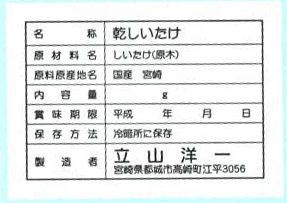 名称 乾しいたけ
原材料名 しいたけ(原木)
原料原産地名 国産 宮崎
内容量 g
賞味期限 平成 年 月 日
保存方法 冷暗所に保存
製造者 立山洋一
宮崎県都城市高崎町江平3056